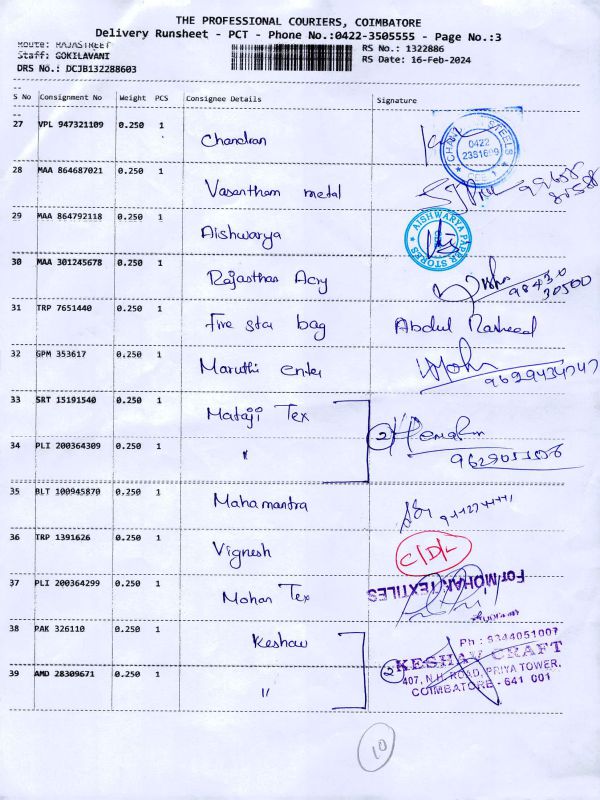 THE PROFESSIONAL COURIERS, COIMBATORE
Delivery Runsheet - PCT - Phone No.:0422-3505555 - Page No.:3
Route: RAJASTREET
RS No.: 1322886
Staff: GOKILAVANI
RS Date: 16-Feb-2024
DRS No.: DCJB132288603
S No Consignment No Weight PCS Consignee Details Signature
27 VPL 947321109 0.250 1 Chandran
STEELS 0422 2381609 CBE-1
28 MAA 864687021 0.250 1 Vasantham metal
29 MAA 864792118 0.250 1 Aishwarya
AISHWARYA PAPER STORES
30 MAA 301245678 0.250 1 Rajasthan Acry
98430 30500
31 TRP 7651440 0.250 1 Five star bag Abdul Rasheed
32 GPM 353617 0.250 1 Maruthi enter
33 SRT 15191540 0.250 1 Mataji Tex
2
34 PLI 200364309 0.250 1 "
35 BLT 100945870 0.250 1 Mahamantra
36 TRP 1391626 0.250 1 Vignesh C/D/-
37 PLI 200364299 0.250 1 Mohan Tex
For MOHAN TEXTILES
38 PAK 326110 0.250 1 Keshav
Ph : 9344051007
2 KESHAV CRAFT
39 AMD 28309671 0.250 1 "
407, N.H. ROAD, PRIYA TOWER,
COIMBATORE - 641 001
10